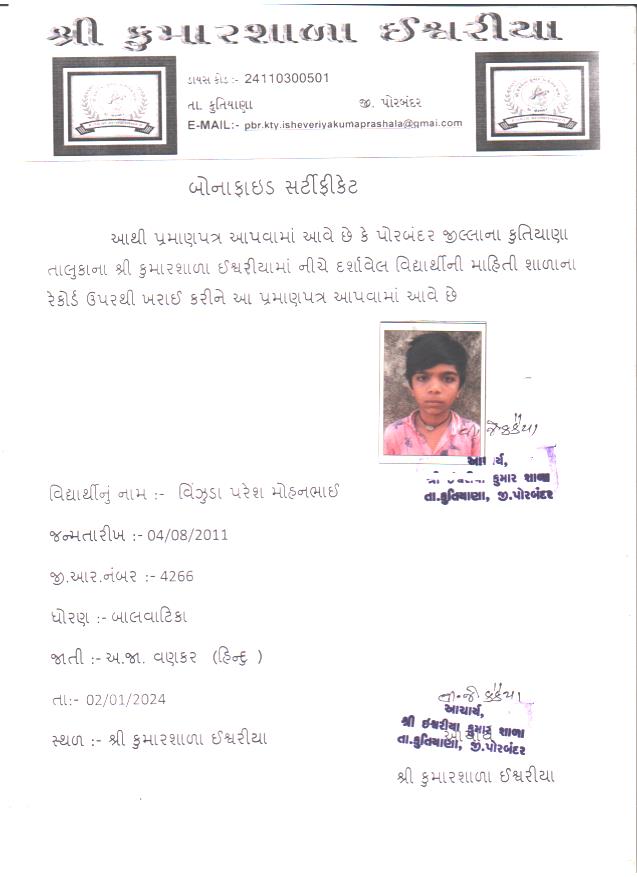 શ્રી કુમારશાળા ઈશ્વરીયા
ડાયસ કોડ :- 24110300501
તા. કુતિયાણા જી. પોરબંદર
E-MAIL:- pbr.kty.isheveriyakumaprashala@gmai.com
બોનાફાઇડ સર્ટીફીકેટ
આથી પ્રમાણપત્ર આપવામાં આવે છે કે પોરબંદર જીલ્લાના કુતિયાણા
તાલુકાના શ્રી કુમારશાળા ઈશ્વરીયામાં નીચે દર્શાવેલ વિદ્યાર્થીની માહિતી શાળાના
રેકોર્ડ ઉપરથી ખરાઈ કરીને આ પ્રમાણપત્ર આપવામાં આવે છે
કુમાર શાળા
તા.કુતિયાણા, જી.પોરબંદર
વિદ્યાર્થીનું નામ :- વિંઝુડા પરેશ મોહનભાઈ
જન્મતારીખ :- 04/08/2011
જી.આર.નંબર :- 4266
ધોરણ :- બાલવાટિકા
જાતી :- અ.જા. વણકર (હિન્દુ )
તા:- 02/01/2024
આચાર્ય,
શ્રી ઈશ્વરીયા કુમાર શાળા
તા.કુતિયાણા, જી.પોરબંદર
સ્થળ :- શ્રી કુમારશાળા ઈશ્વરીયા
શ્રી કુમારશાળા ઈશ્વરીયા